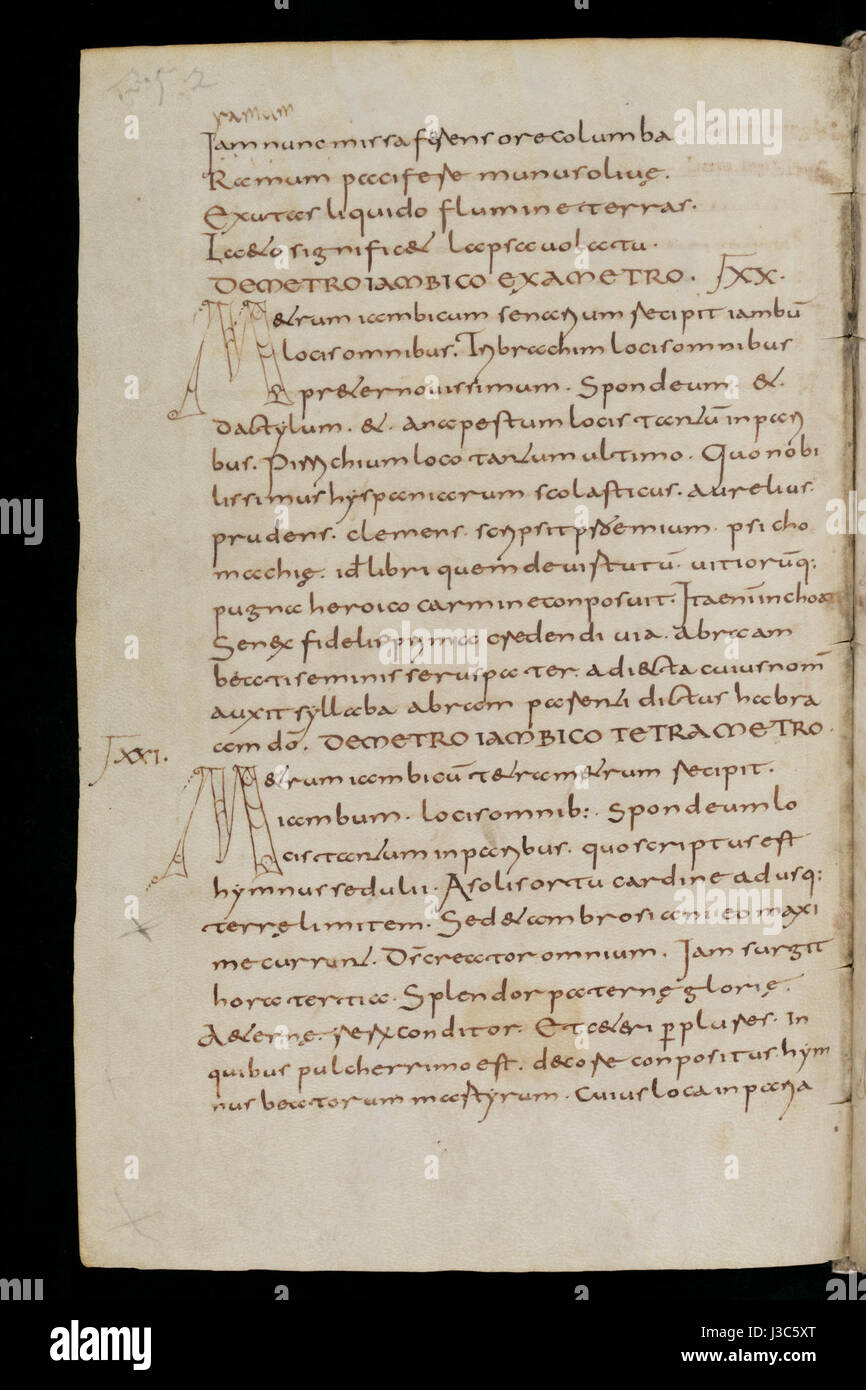 252
ramum
Iam nunc missa ferens ore columba
Ramum pacifere munus olivę.
Exutas liquido flumine terras.
Laeto significaet lapsa volatu.
DE METRO IAMBICO EXAMETRO. XX.
Metrum iambicum senarium recipit iambū
locis omnibus. Tribrachim locis omnibus
praeter novissimum. Spondeum. et.
dactylum. et. anapestum locis tantū in pari
bus. Pirrichium loco tantum ultimo. Quo nobi
lissimus hyspaniarum scolasticus. aurelius.
prudens. clemens. scripsit prohemium. psicho
machię. id libri quem de virtutū. vitiorūq:
pugna heroico carmine conposuit. Ita enim inchoa
Senex fidelis prima credendi via. abraam
beati seminis serus pater. adiecta cuius nom̄
auxit syllaba abram parenti dictus habra
am dō. DE METRO IAMBICO TETRAMETRO.
XXI.
Metrum iambicū tetrametrum recipit.
iambum. locis omnib:. Spondeum lo
cis tantum in paribus. quo scriptus est
hymnus sedulii. A solis ortu cardine ad usq:
terrę limitem. Sed et ambrosiani eo maxi
me currunt. Ds creator omnium. Iam surgit
hora tertia. Splendor paternę glorię.
Aeterne. rerum conditor. Et ceteri perplures. In
quibus pulcherrimo est. decore conpositus hym
nus beatorum martyrum. Cuius loca in paria
alamy
alamy
Image ID: J3C5XT
www.alamy.com